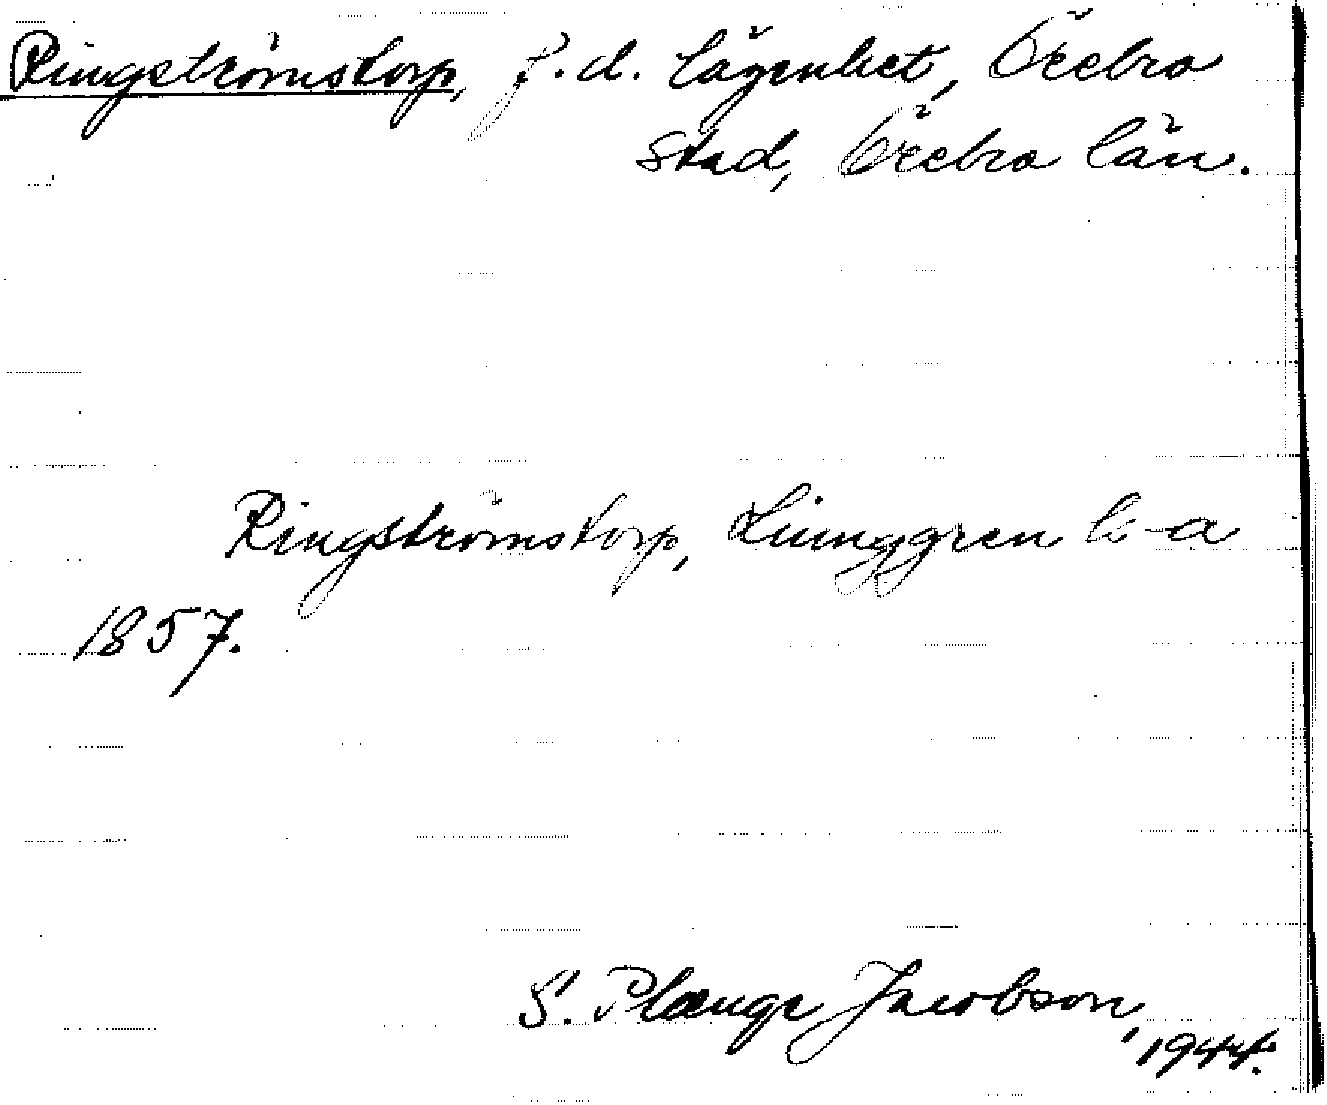 Ringströmstorp, f.d. lägenhet, Örebro
stad, Örebro län.
Ringströmstorp, Ljunggren k-a
1857.
S. Plænge Jacobson,
1944.